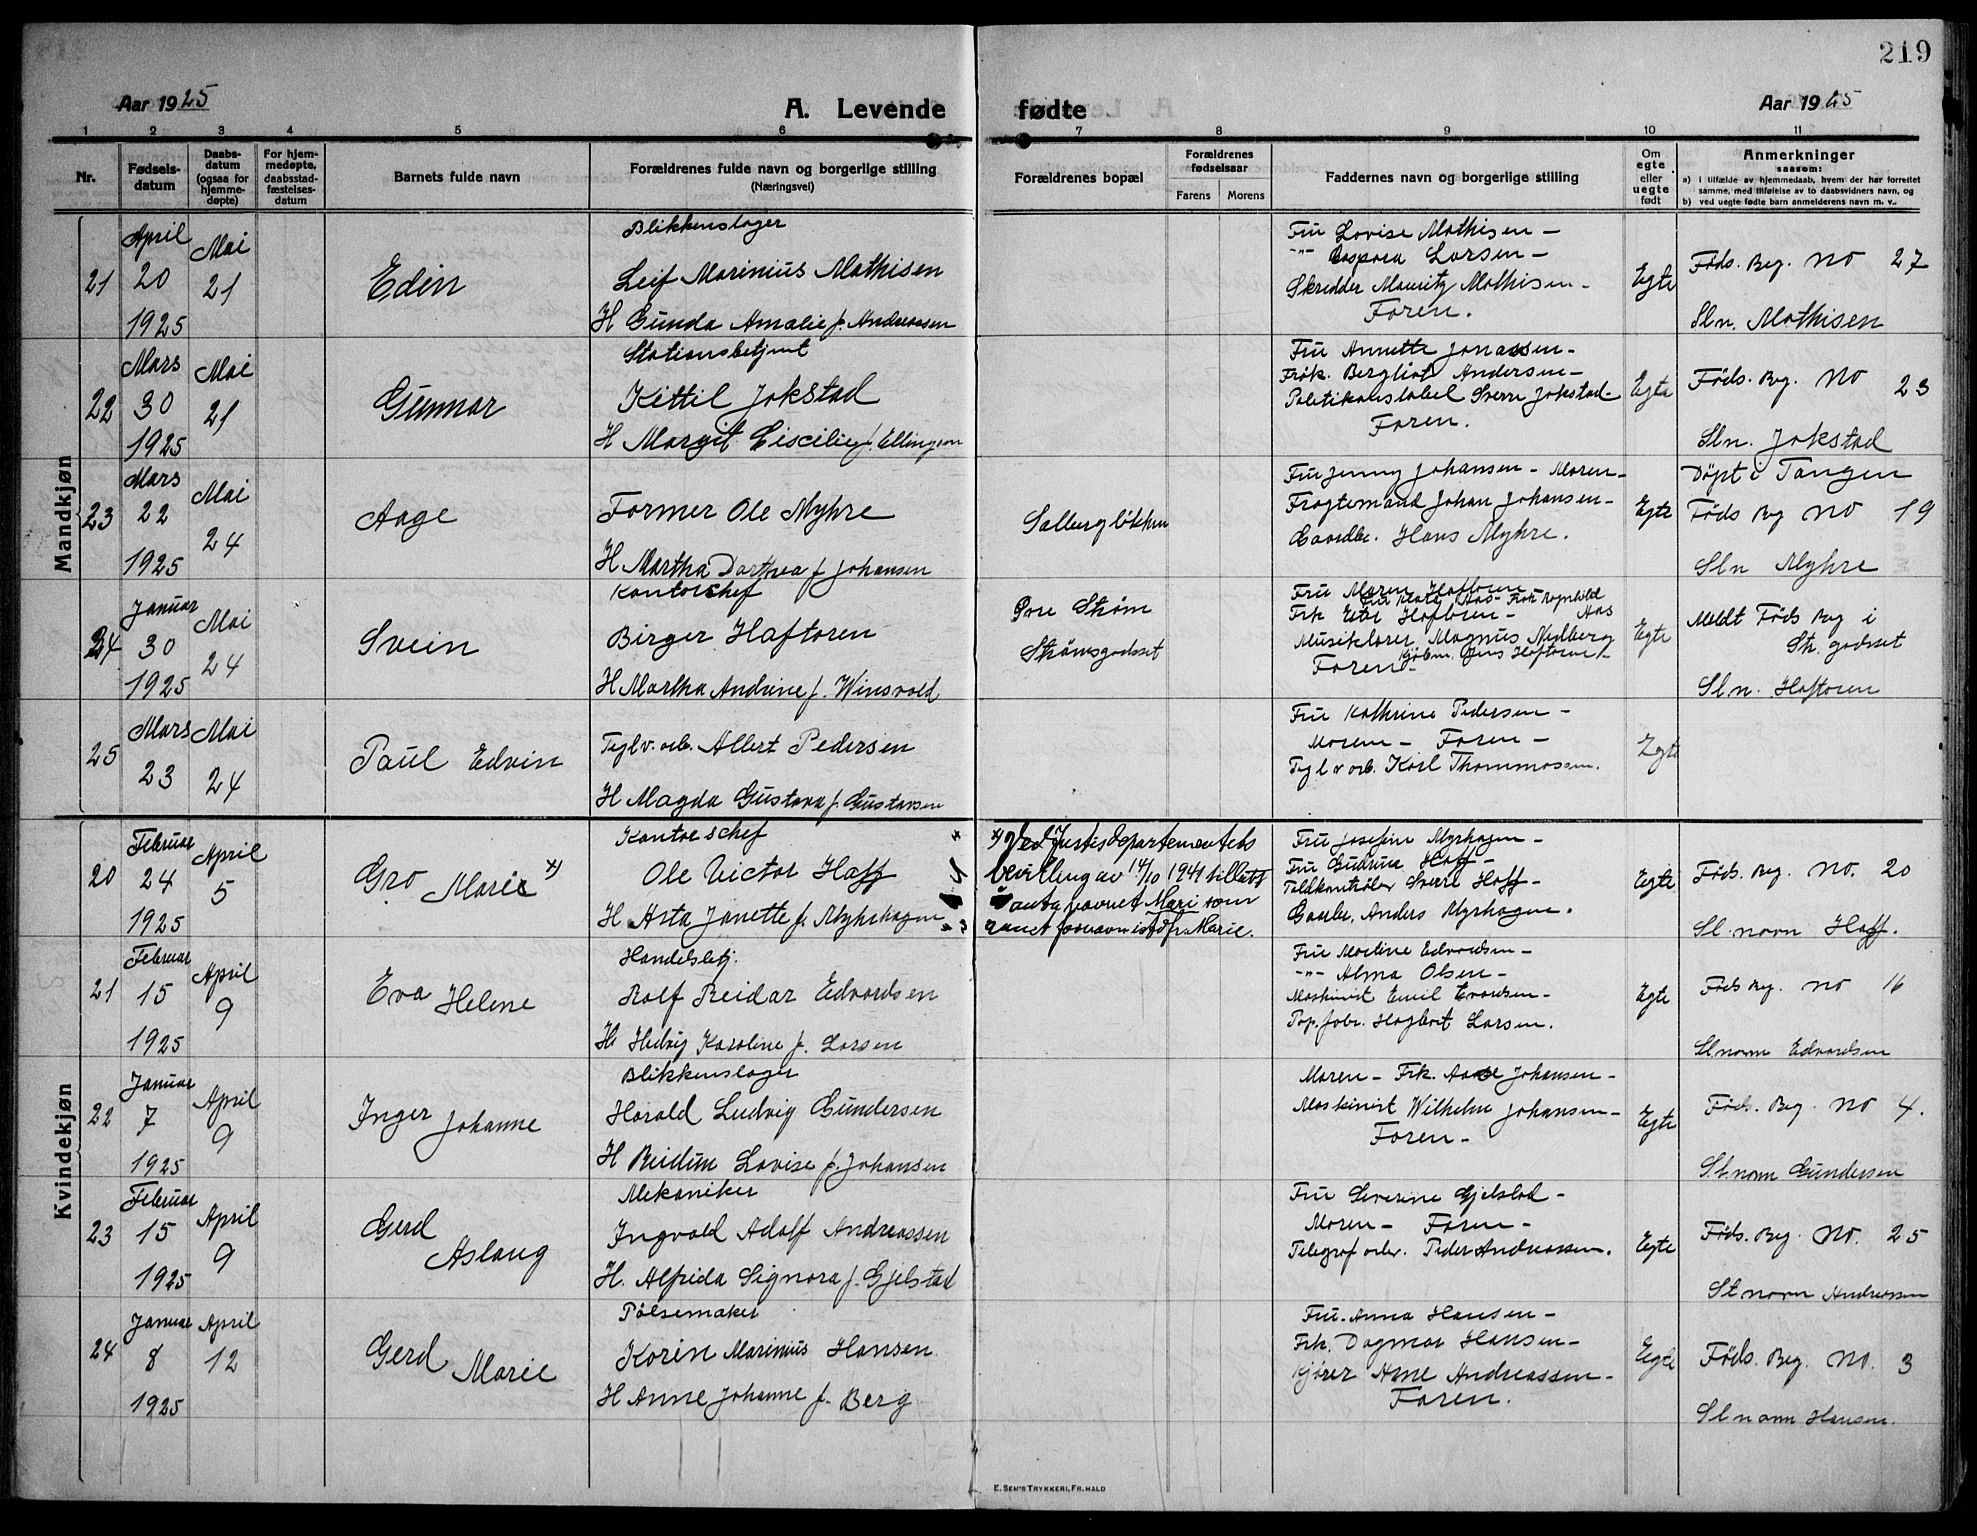 219
Aar 1925
A. Levende fødte
Aar 1925
1 2 3 4 5 6 7 8 9 10 11
Nr.
Fødsels-
datum
Daabs-
datum
(ogsaa for
hjemme-
døpte)
For hjem-
medøpte,
daabsstad-
fæstelses-
datum
Barnets fulde navn
Forældrenes fulde navn og borgerlige stilling
(Næringsvei)
Forældrenes bopæl
Forældrenes
fødselsaar
Farens Morens
Faddernes navn og borgerlige stilling
Om
egte
eller
uegte
født
Anmerkninger
saasom:
a) i tilfælde av hjemmedaab, hvem der har forrettet
samme, med tilføielse av to daabsvidners navn, og
b) ved uegte fødte barn anmelderens navn m. v..
Mandkjøn
21
April
20
1925
Mai
21
Edin
Blikkenslager
Leif Marinius Mathisen
H Gunda Amalie f. Andreassen
Fru Lovise Mathisen -
-"- Larsen -
Skredder Mauritz Mathisen -
Faren.
Egte
Føds. Reg. No 27
Sln. Mathisen
22
Mars
30
1925
Mai
21
Gunnar
Stationsbetjent
Kittil Jokstad
H Margit Cicilie f. Ellingsen
Fru Annette Jonassen -
Frøk. Bergliot Andersen -
Politikonstabel Sverre Jokstad -
Faren.
Egte
Føds. Reg. No 23
Sln. Jokstad
23
Mars
22
1925
Mai
24
Aage
Former Ole Myhre
H Martha Dorthea f Johansen
Solbergløkken
Fru Jenny Johansen - Moren -
Fragtemand Johan Johansen -
Gaardbr. Hans Myhre.
Egte
Døpt i Tangen
Føds Reg No 19
Sln Myhre
24
Januar
30
1925
Mai
24
Svein
Kontorschef
Birger Haftoren
H Martha Andrine f. Winsvold
Gove Strøm
Strømsgodset
Fru Maren Haftoren -
Frk Haftoren -
Musiklærer Magnus Nylberg
Faren - Haftoren -
Egte
Meldt Føds Reg i
Str. godset
Sln. Haftoren
25
Mars
23
Mai
24
Paul Edvin
Teglv. arb. Albert Pedersen
H Magda Gustava f. Gustavsen
Fru Kathrine Pedersen -
Moren - Faren -
Teglv arb. Karl Thommassen.
Egte
Kvindekjøn
20
Februar
24
1925
April
5
Gro Marie x)
Kontorschef
Ole Victor Haff
H. Asta Janette f. Myhrhagen
x) Ved Justisdepartementets
bevilling av 14/10 1941 tillatt
å anta navnet Mari som
annet fornavn istdf. Marie.
Fru Josefine Myrhagen -
Fru Gudrun Haff -
Toldkontrolør Sverre Haff -
Gaardbr. Anders Myrhagen.
Egte
Føds. Reg. No. 20
Sl. navn Haff.
21
Februar
15
1925
April
9
Eva Helene
Handelsbetj.
Rolf Reidar Edvardsen
H. Hedvig Karoline f. Larsen
Fru Martine Edvardsen -
-"- Alma Olsen -
Maskinist Emil Evardsen -
Pap. fabr. Hagbart Larsen.
Egte
Føds Reg. No 16
Sl navn Edvardsen
22
Januar
7
1925
April
9
Inger Johanne
Blikkenslager
Harald Ludvig Gundersen
H Reidun Lovise f. Johansen
Moren - Frk. Aase Johansen -
Maskinist Wilhelm Johansen -
Faren -
Egte
Føds. Reg. No 4.
Sl. navn Gundersen
23
Februar
15
1925
April
9
Gerd Aslaug
Mekaniker
Ingvald Adolf Andreassen
H. Alfrida Signora f. Gjelstad
Fru Severine Gjelstad -
Moren - Faren -
Telegraf arb. Peder Andreassen.
Egte
Føds. Reg. No. 25
Sl navn Andreassen
24
Januar
8
1925
April
12
Gerd Marie
Pølsemaker
Karin Marinius Hansen
H Anne Johanne f. Berg
Fru. Anna Hansen -
Frk. Dagmar Hansen -
Kjører Arne Andreassen -
Faren.
Egte
Føds. Reg. No. 3
Sl navn Hansen.
E. SEM'S TRYKKERI, FR.HALD